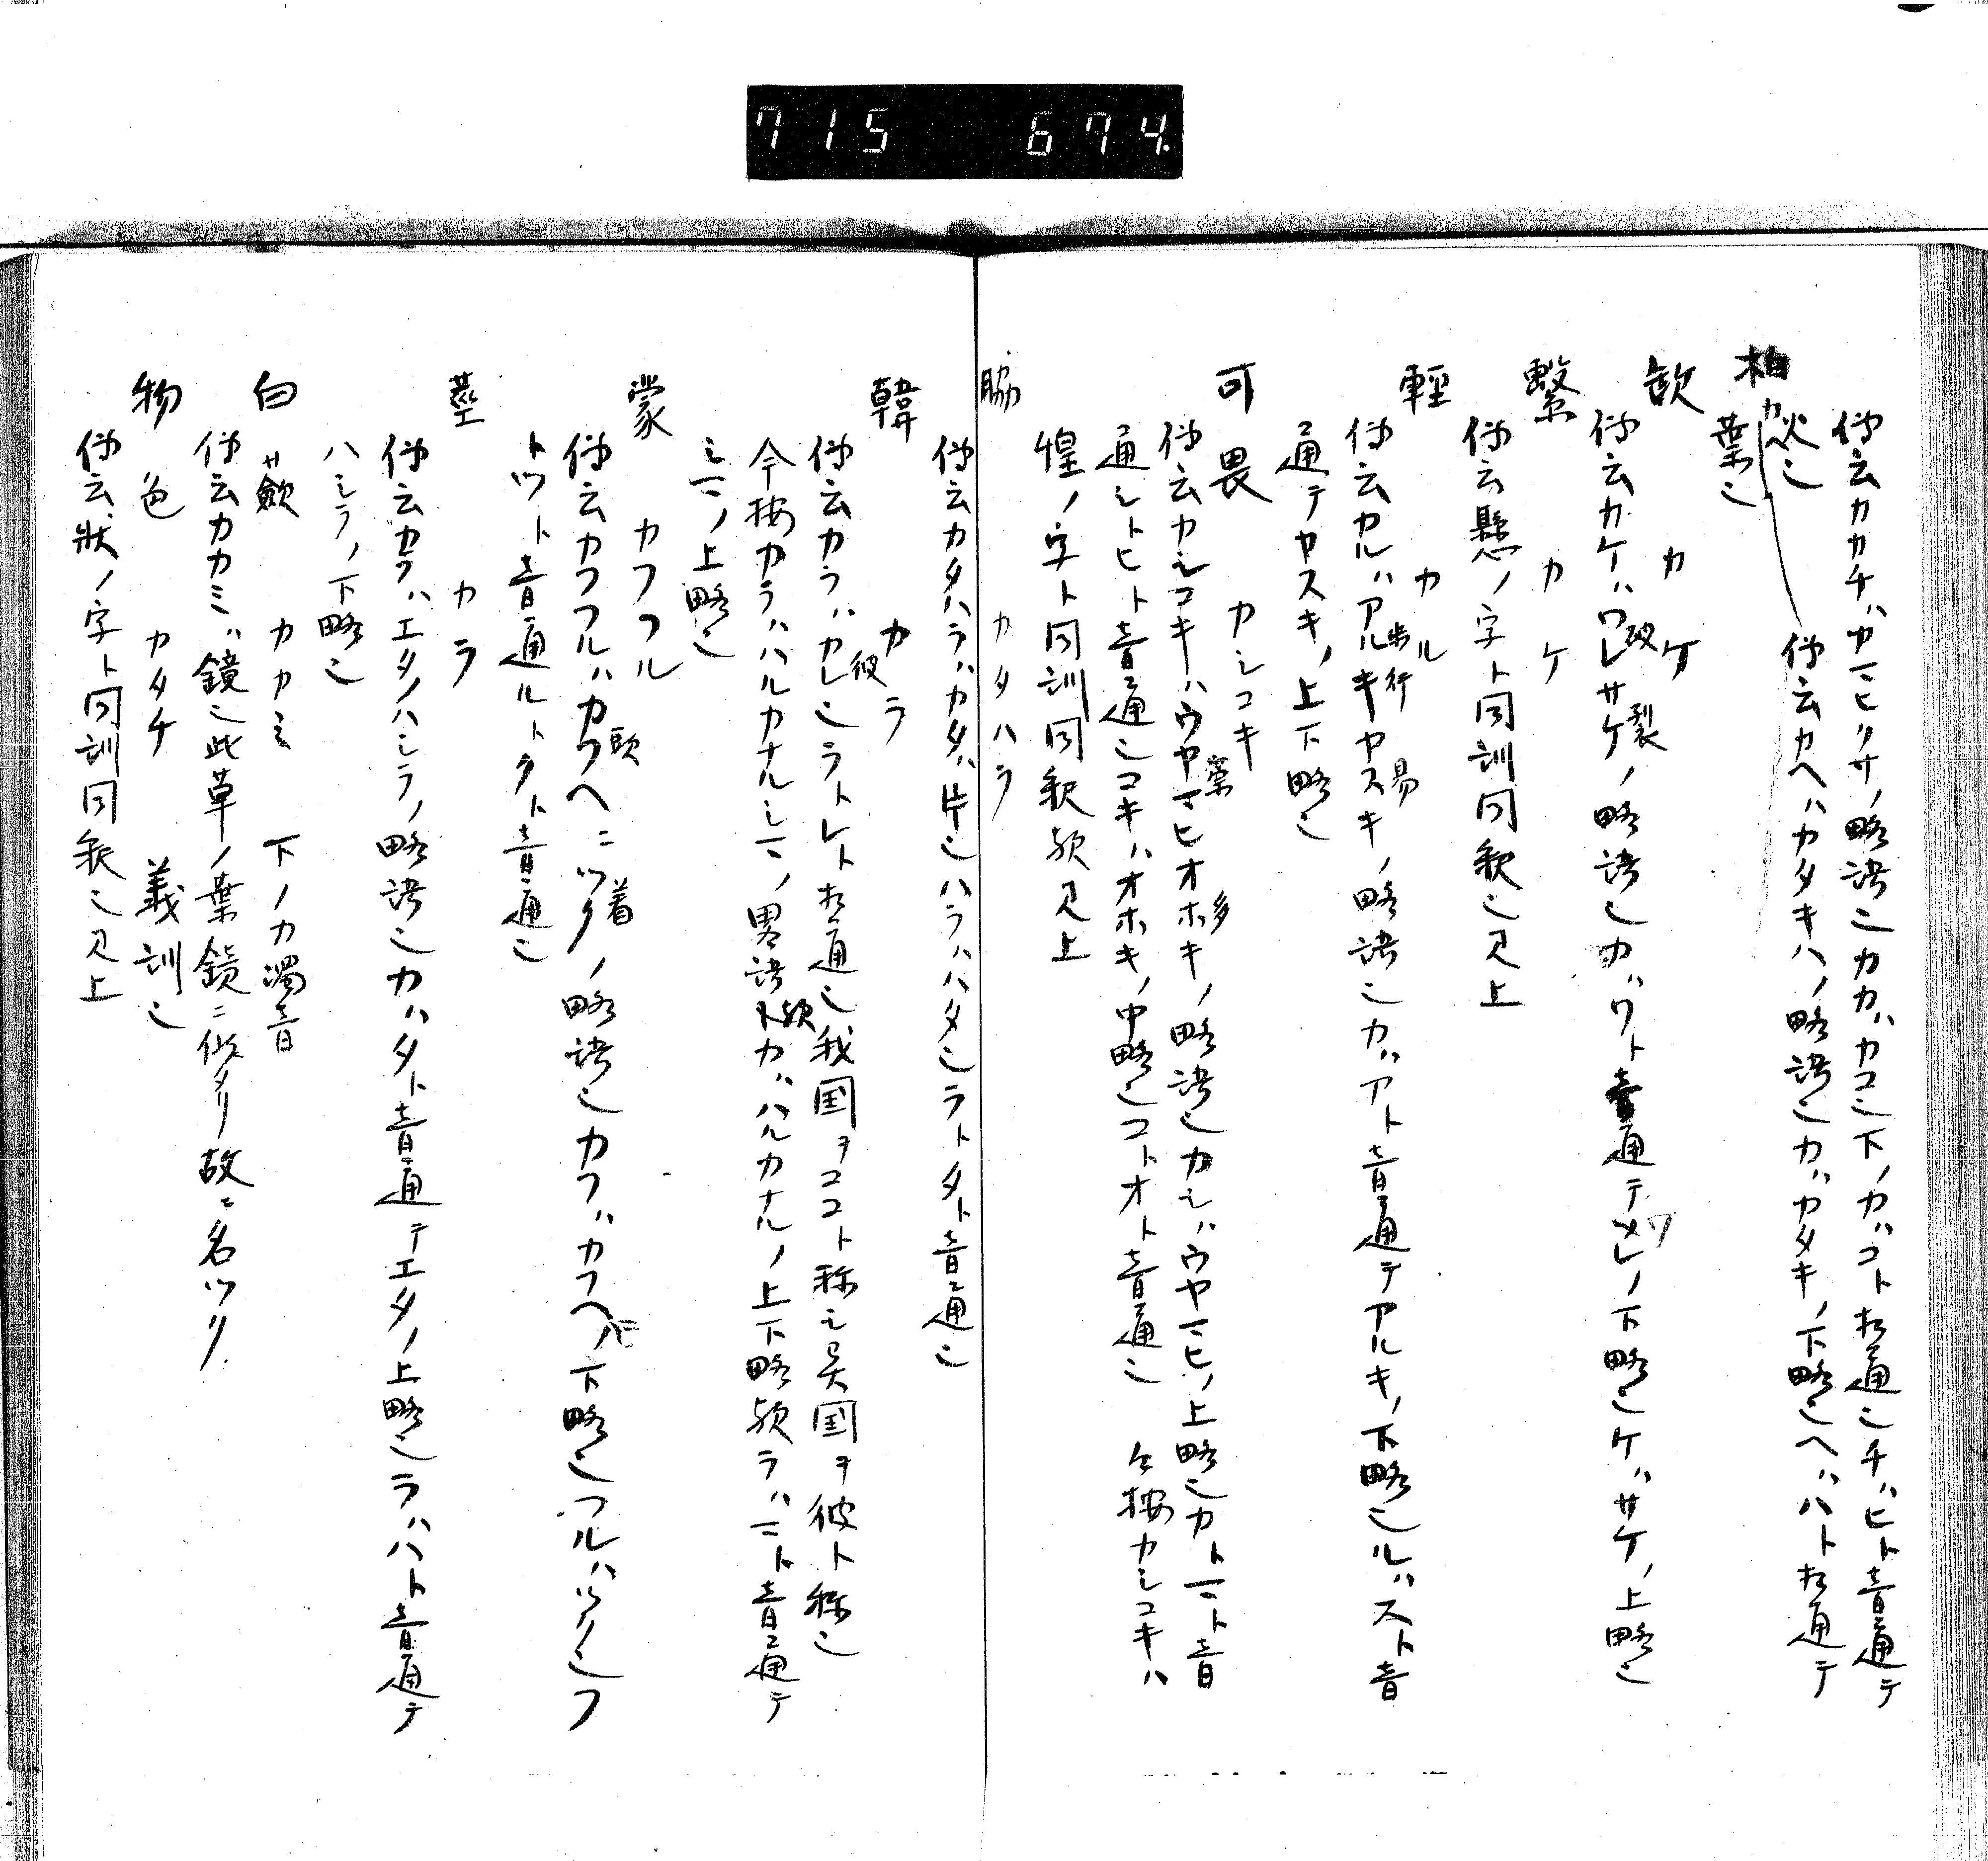 715 674.
仲云カカチハカニヒクサノ略語也カカハカコ也下ノカハコト相通也チハヒト音通テ
柏
火也 仲云カヘハカタキハノ略語也カハカタキノ下略也ヘハハト相通テ
葉也
歃 カケ
仲云カケハワレサケノ略語也カハワト音通テワレノ下略也ケハサケノ上略也
破 裂
繫 カケ
仲云懸ノ字ト同訓同釈也見上
輕 カル
仲云カルハアルキヤスキノ略語也カハアト音通テアルキノ下略也ルハスト音
歩行 易
通テヤスキノ上下略也
可畏 カシコキ
仲云カシコキハウヤマヒオホキノ略語也カシハウヤマヒノ上略也カトマト音
多
通シトヒト音通也コキハオホキノ中略也コトオト音通也 今按カシコキハ
惶ノ字ト同訓同釈欤見上
脇 カタハラ
仲云カタハラハカタハ片也ハラハハタ也ラトタト音通也
韓 カラ
仲云カラハカレ也ラトレト相通也我国ヲココト称シ異国ヲ彼ト称也
彼
今按カラハハルカナルシマノ畧語欤カハハルカナルノ上下略欤ラハマト音通テ
シマノ上略也
蒙 カフル
仲云カフルハカフヘニツクノ略語也カフハカフヘノ下略也フルハツク也フ
頭 着
トツト音通ルトクト音通也
莖 カラ
仲云カラハエタノハシラノ略語也カハタト音通テエタノ上略也ラハハト音通テ
ハシラノ下略也
白蘞 カカミ 下ノカ濁音
仲云カカミハ鏡也此草ノ葉鏡ニ似タリ故ニ名ツク
物色 カタチ 義訓也
仲云状ノ字ト同訓同釈也見上